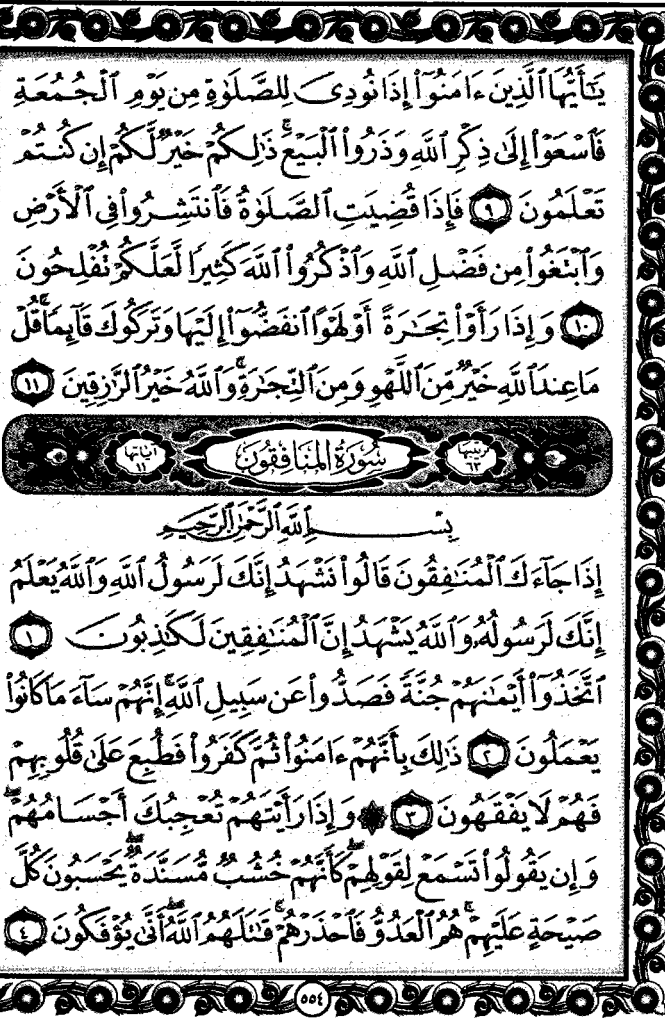 يَٰٓأَيُّهَا ٱلَّذِينَ ءَامَنُوٓا۟ إِذَا نُودِىَ لِلصَّلَوٰةِ مِن يَوْمِ ٱلْجُمُعَةِ
فَٱسْعَوْا۟ إِلَىٰ ذِكْرِ ٱللَّهِ وَذَرُوا۟ ٱلْبَيْعَ ۚ ذَٰلِكُمْ خَيْرٌ لَّكُمْ إِن كُنتُمْ
تَعْلَمُونَ ٩ فَإِذَا قُضِيَتِ ٱلصَّلَوٰةُ فَٱنتَشِرُوا۟ فِى ٱلْأَرْضِ
وَٱبْتَغُوا۟ مِن فَضْلِ ٱللَّهِ وَٱذْكُرُوا۟ ٱللَّهَ كَثِيرًا لَّعَلَّكُمْ تُفْلِحُونَ
١٠ وَإِذَا رَأَوْا۟ تِجَٰرَةً أَوْ لَهْوًا ٱنفَضُّوٓا۟ إِلَيْهَا وَتَرَكُوكَ قَآئِمًا ۚ قُلْ
مَا عِندَ ٱللَّهِ خَيْرٌ مِّنَ ٱللَّهْوِ وَمِنَ ٱلتِّجَٰرَةِ ۚ وَٱللَّهُ خَيْرُ ٱلرَّٰزِقِينَ ١١
ترتيبها ٦٣ سُورَةُ المُنَافِقُونَ آياتها ١١
بِسْمِ ٱللَّهِ ٱلرَّحْمَٰنِ ٱلرَّحِيمِ
إِذَا جَآءَكَ ٱلْمُنَٰفِقُونَ قَالُوا۟ نَشْهَدُ إِنَّكَ لَرَسُولُ ٱللَّهِ ۗ وَٱللَّهُ يَعْلَمُ
إِنَّكَ لَرَسُولُهُۥ وَٱللَّهُ يَشْهَدُ إِنَّ ٱلْمُنَٰفِقِينَ لَكَٰذِبُونَ ١
ٱتَّخَذُوٓا۟ أَيْمَٰنَهُمْ جُنَّةً فَصَدُّوا۟ عَن سَبِيلِ ٱللَّهِ ۚ إِنَّهُمْ سَآءَ مَا كَانُوا۟
يَعْمَلُونَ ٢ ذَٰلِكَ بِأَنَّهُمْ ءَامَنُوا۟ ثُمَّ كَفَرُوا۟ فَطُبِعَ عَلَىٰ قُلُوبِهِمْ
فَهُمْ لَا يَفْقَهُونَ ٣ ۞ وَإِذَا رَأَيْتَهُمْ تُعْجِبُكَ أَجْسَامُهُمْ ۖ
وَإِن يَقُولُوا۟ تَسْمَعْ لِقَوْلِهِمْ ۖ كَأَنَّهُمْ خُشُبٌ مُّسَنَّدَةٌ ۖ يَحْسَبُونَ كُلَّ
صَيْحَةٍ عَلَيْهِمْ ۚ هُمُ ٱلْعَدُوُّ فَٱحْذَرْهُمْ ۚ قَٰتَلَهُمُ ٱللَّهُ ۖ أَنَّىٰ يُؤْفَكُونَ ٤
٥٥٤